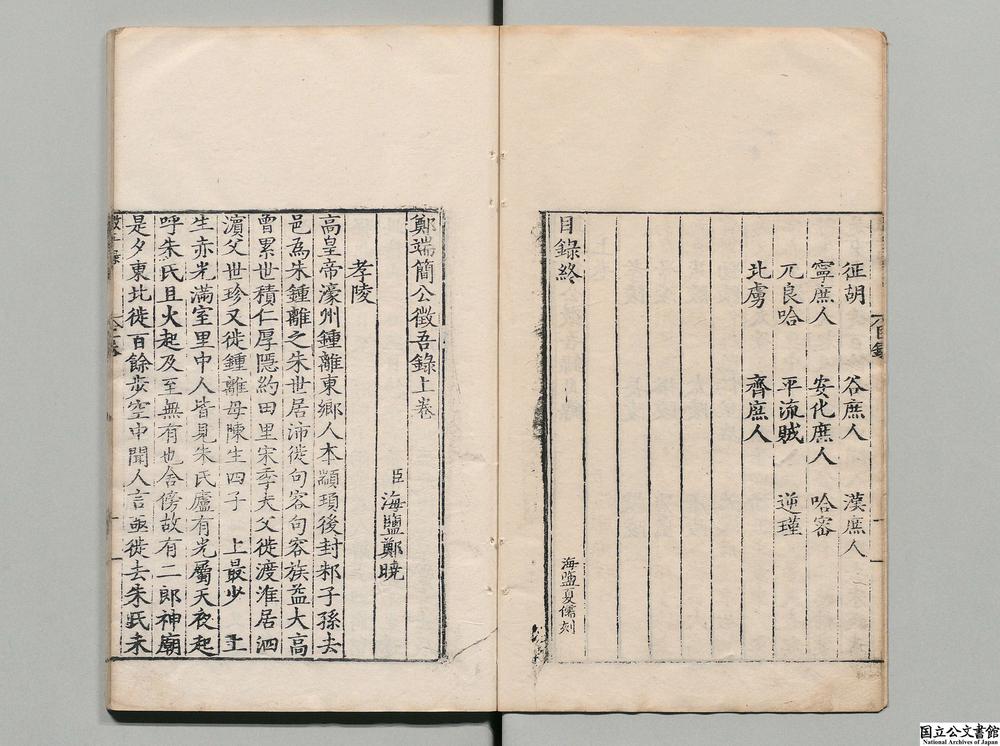 征胡 谷庶人 漢庶人
寧庶人 安化庶人 哈密
兀良哈 平流賊 逆瑾
北虜 齊庶人
目錄終
海鹽夏儒刻
鄭端簡公徵吾錄上卷
臣海鹽鄭曉
孝陵
高皇帝濠州鍾離東鄉人本顓頊後封邾子孫去
邑為朱鍾離之朱世居沛徙句容句容族益大高
曾累世積仁厚隱約田里宋季大父徙渡淮居泗
濵父世珍又徙鍾離母陳生四子 上最少 上
生亦光滿室里中人皆見朱氏廬有光屬天夜起
呼朱氏且火起及至無有也舍傍故有二郎神廟
是夕東北徙百餘步空中聞人言亟徙去朱氏未
国立公文書館
National Archives of Japan